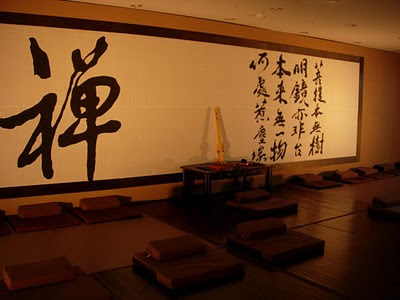 禪
菩提本無樹
明鏡亦非台
本來無一物
何處惹塵埃